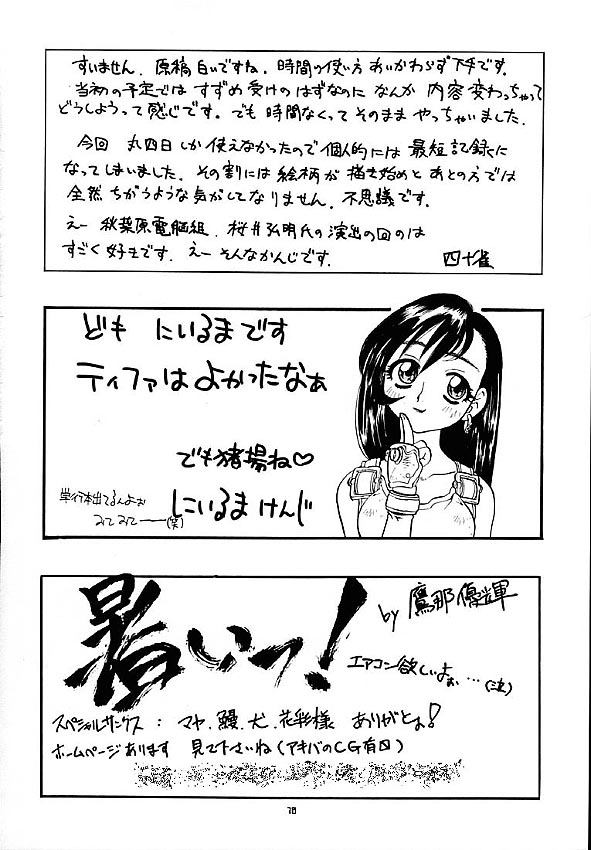 すいません、原稿白いですね、時間の使い方あいかわらず下手です。
当初の予定では すずめ受けのはずなのに なんか 内容変わっちゃって
どうしようって感じです。でも 時間なくって そのまま やっちゃいました。
今回 丸四日しか使えなかったので個人的には 最短記録に
なってしまいました。その割には絵柄が描き始めとあとの方では
全然 ちがうような気がしてなりません。不思議です。
えー 秋葉原電脳組、桜井弘明氏の演出の回のは
すごく好きです。えー そんなかんじです。
四十雀
ども にいるまです
ティファは よかったなぁ
でも猪場ね♡
単行本出てるんよぉ
みてみてーー(笑)
にいるま けんじ
暑いっ!
by 鷹那優輝
エアコン欲しいよぉ…(泣)
スペシャルサンクス : マヤ、鰻、犬、花彩様 ありがとよ!
ホームページあります 見て下さいね(アキバのCG有四)
78